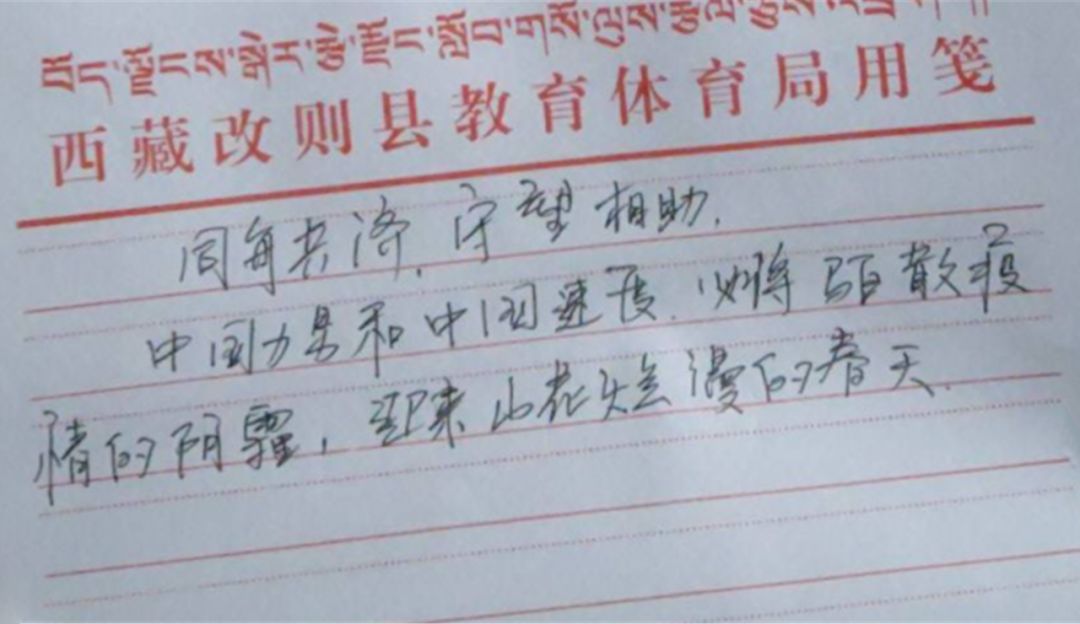 བོད་ལྗོངས་སྒེར་རྩེ་རྫོང་སློབ་གསོ་ལུས་རྩལ་
西藏改则县教育体育局用笺
同舟共济，守望相助，
中国力量和中国速度，必将驱散疫
情的阴霾，迎来山花烂漫的春天。